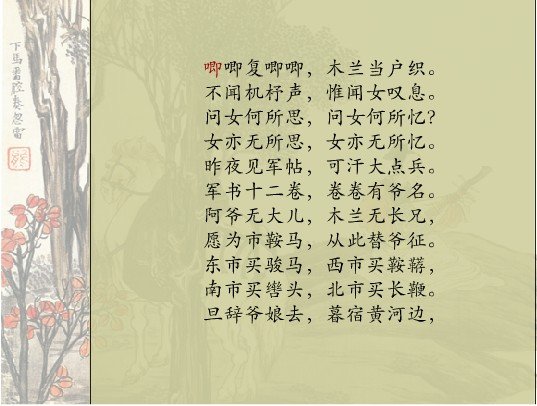 唧唧复唧唧，木兰当户织。
不闻机杼声，惟闻女叹息。
问女何所思，问女何所忆?
女亦无所思，女亦无所忆。
昨夜见军帖，可汗大点兵。
军书十二卷，卷卷有爷名。
阿爷无大儿，木兰无长兄，
愿为市鞍马，从此替爷征。
东市买骏马，西市买鞍鞯，
南市买辔头，北市买长鞭。
旦辞爷娘去，暮宿黄河边，